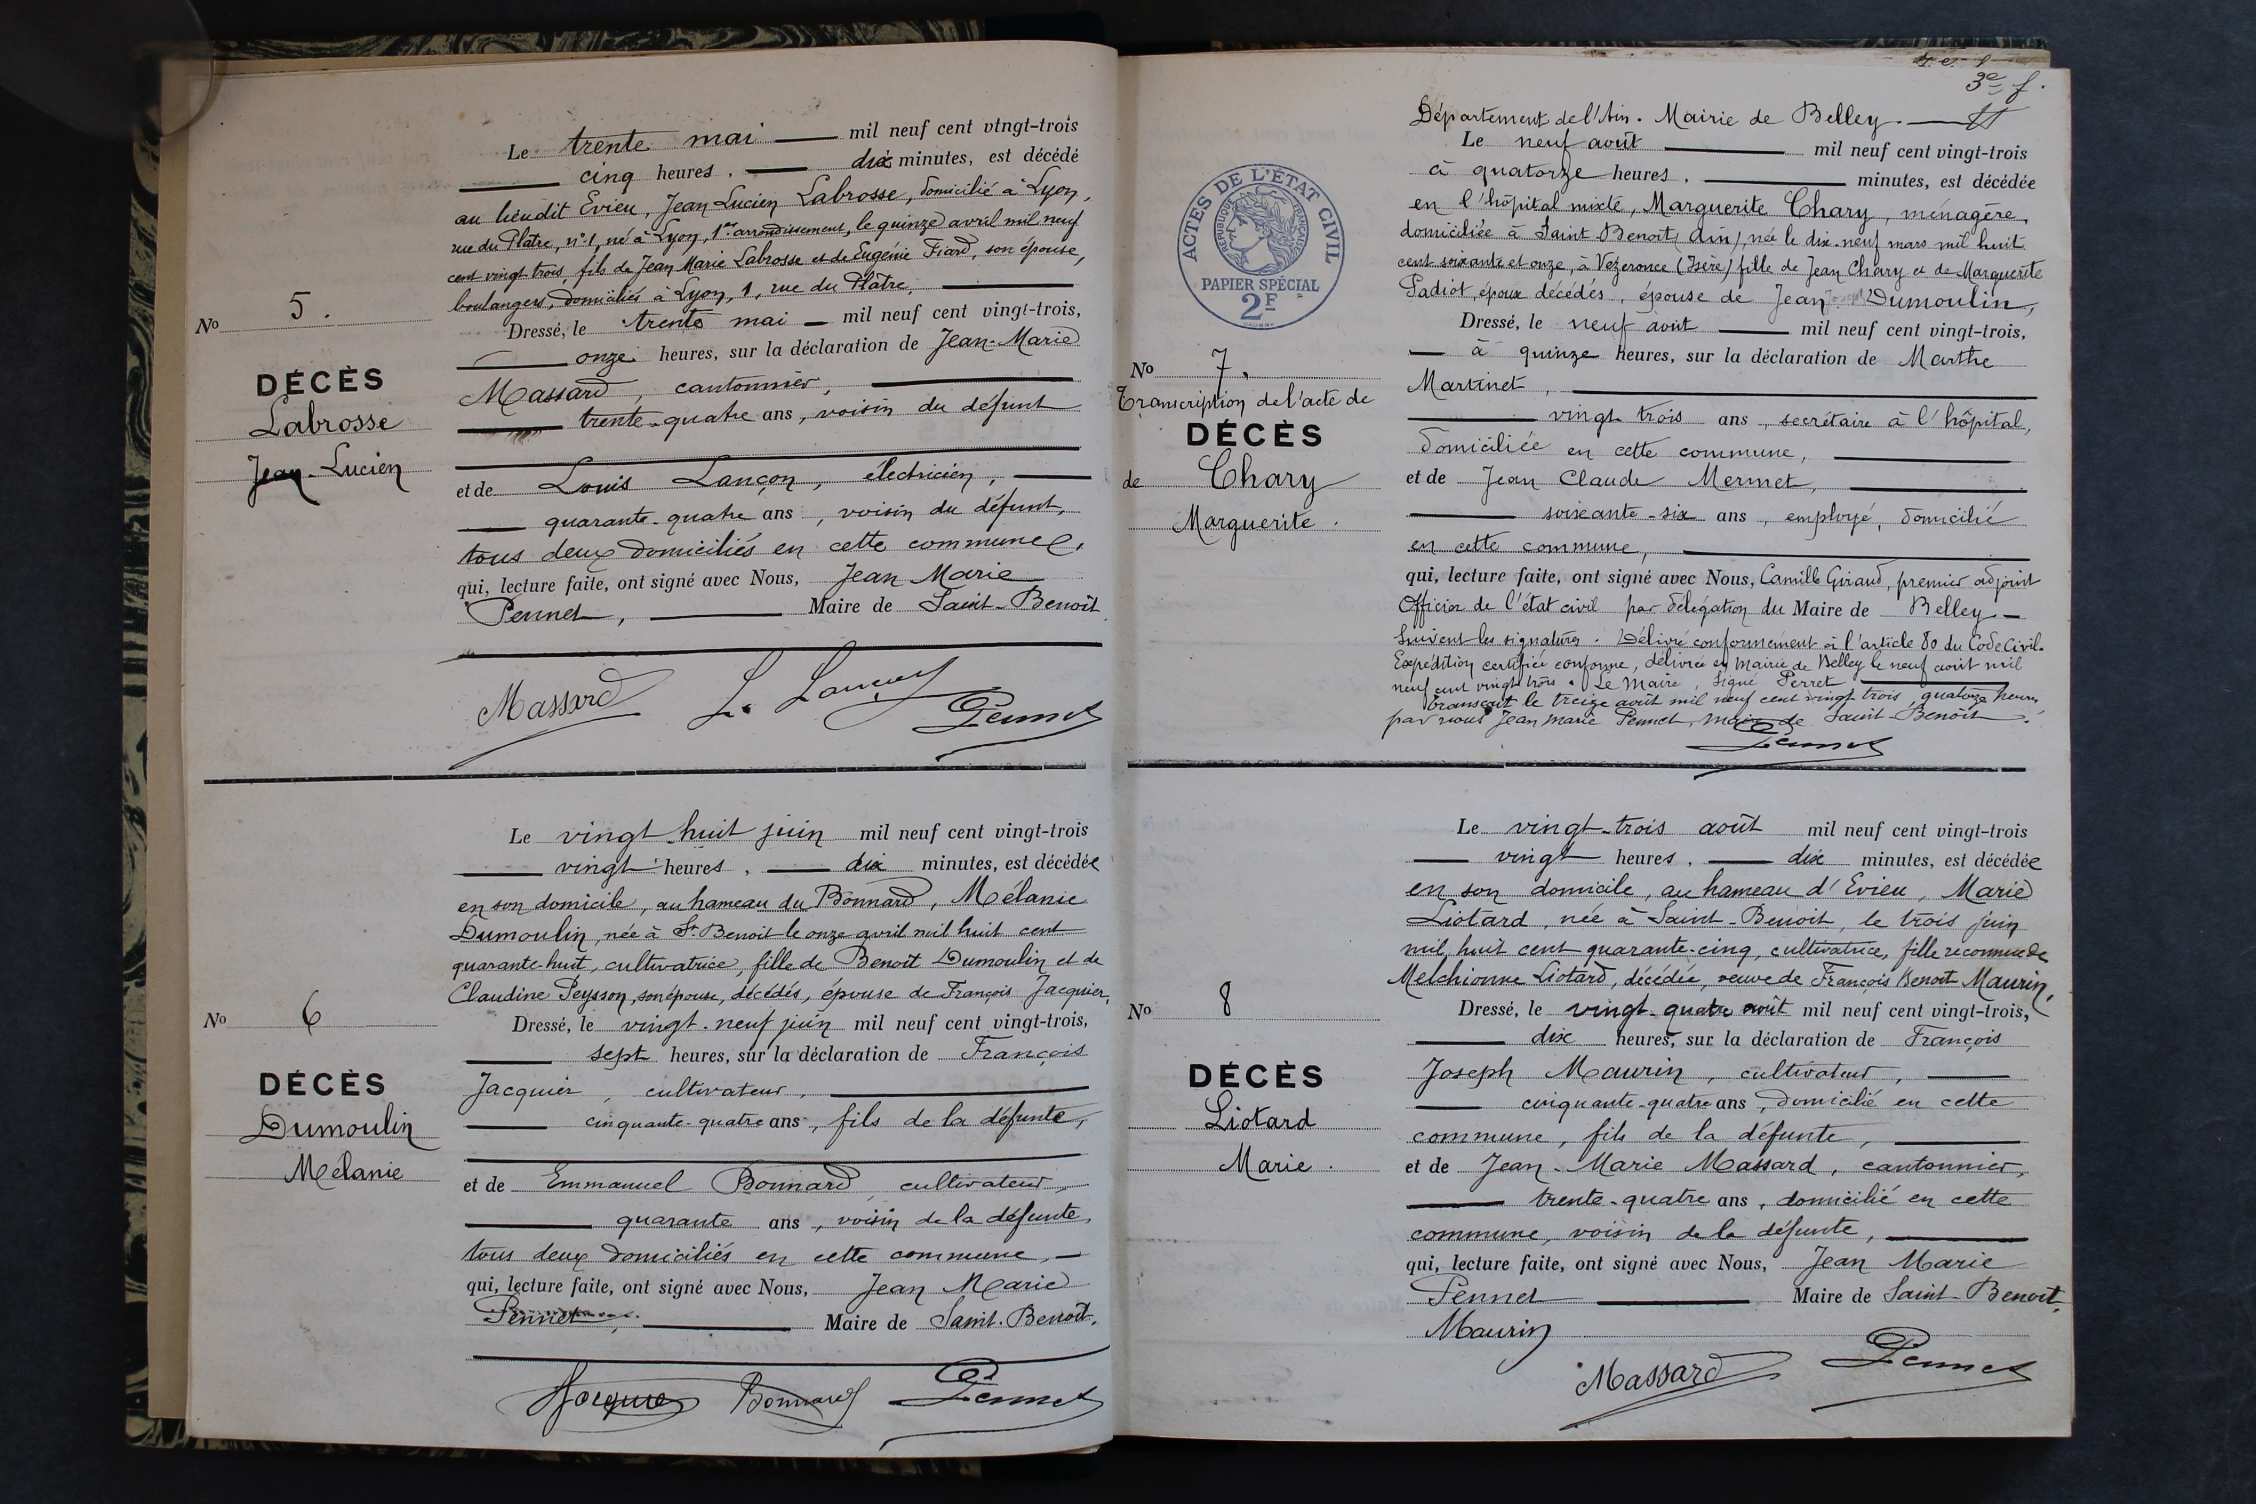 Le trente mai mil neuf cent vingt-trois
cinq heures, dix minutes, est décédé
au lieudit Evieu, Jean Lucien Labrosse, domicilié à Lyon,
rue du Platre, n° 1, né à Lyon, 1er arrondissement, le quinze avril mil neuf
cent vingt trois, fils de Jean Marie Labrosse et de Eugénie Fiard, son épouse,
boulangers, domiciliés à Lyon, 1, rue du Platre,
No 5.
DÉCÈS
Labrosse
Jean-Lucien
Dressé, le trente mai mil neuf cent vingt-trois,
onze heures, sur la déclaration de Jean-Marie
Massard, cantonnier,
trente-quatre ans, voisin du défunt
et de Louis Lançon, électricien,
quarante-quatre ans, voisin du défunt,
tous deux domiciliés en cette commune,
qui, lecture faite, ont signé avec Nous, Jean Marie
Pennet, Maire de Saint-Benoît
Massard L. Lançon Pennet
Le vingt-huit juin mil neuf cent vingt-trois
vingt heures, dix minutes, est décédée
en son domicile, au hameau du Bonnard, Mélanie
Dumoulin, née à St Benoit le onze avril mil huit cent
quarante-huit, cultivatrice, fille de Benoit Dumoulin et de
Claudine Peysson, son épouse, décédés, épouse de François Jacquier,
No 6
DÉCÈS
Dumoulin
Mélanie
Dressé, le vingt-neuf juin mil neuf cent vingt-trois,
sept heures, sur la déclaration de François
Jacquier, cultivateur,
cinquante-quatre ans, fils de la défunte,
et de Emmanuel Bonnard, cultivateur,
quarante ans, voisin de la défunte,
tous deux domiciliés en cette commune,
qui, lecture faite, ont signé avec Nous, Jean Marie
Pennet, Maire de Saint-Benoît.
Jacquier Bonnard Pennet
3e f.
ACTES DE L'ÉTAT CIVIL
RÉPUBLIQUE FRANÇAISE
PAPIER SPÉCIAL
2F
Département de l'Ain. Mairie de Belley.
Le neuf août mil neuf cent vingt-trois
à quatorze heures, minutes, est décédée
en l'hôpital mixte, Marguerite Chary, ménagère,
domiciliée à Saint Benoit (Ain), née le dix-neuf mars mil huit
cent soixante et onze, à Vezeronce (Isère) fille de Jean Chary et de Marguerite
Padiot, époux décédés, épouse de Jean Dumoulin,
No 7.
Transcription de l'acte de
DÉCÈS
de Chary
Marguerite.
Dressé, le neuf août mil neuf cent vingt-trois,
à quinze heures, sur la déclaration de Marthe
Martinet,
vingt trois ans, secrétaire à l'hôpital,
domiciliée en cette commune,
et de Jean Claude Mermet,
soixante-six ans, employé, domicilié
en cette commune,
qui, lecture faite, ont signé avec Nous, Camille Giraud, premier adjoint
Officier de l'état civil par délégation du Maire de Belley
Suivent les signatures. Délivré conformément à l'article 80 du Code Civil.
Expédition certifiée conforme, délivrée en Mairie de Belley le neuf août mil
neuf cent vingt trois. Le Maire, Signé Perret
Transcrit le treize août mil neuf cent vingt-trois, quatorze heures,
par nous Jean Marie Pennet, Maire de Saint-Benoît.
Pennet
Le vingt-trois août mil neuf cent vingt-trois
vingt heures, dix minutes, est décédée
en son domicile, au hameau d'Evieu, Marie
Liotard, née à Saint-Benoit, le trois juin
mil huit cent quarante-cinq, cultivatrice, fille reconnue de
Melchionne Liotard, décédée, veuve de François Benoit Maurin,
No 8
DÉCÈS
Liotard
Marie.
Dressé, le vingt-quatre août mil neuf cent vingt-trois,
dix heures, sur la déclaration de François
Joseph Maurin, cultivateur,
cinquante-quatre ans, domicilié en cette
commune, fils de la défunte,
et de Jean-Marie Massard, cantonnier,
trente-quatre ans, domicilié en cette
commune, voisin de la défunte,
qui, lecture faite, ont signé avec Nous, Jean Marie
Pennet Maire de Saint-Benoît.
Maurin
Massard Pennet